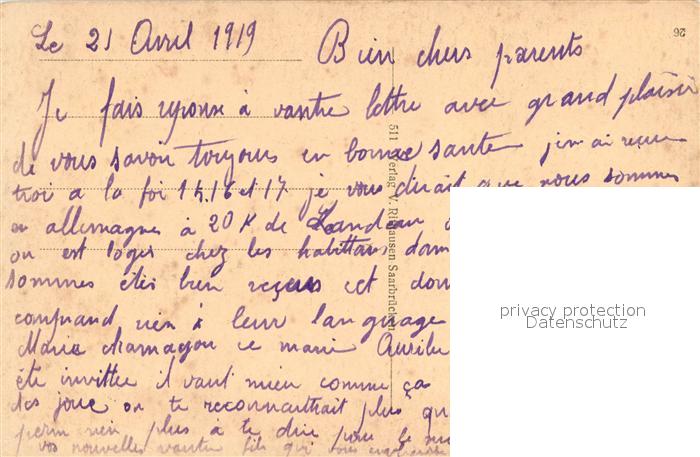 Le 21 Avril 1919
Bien chers parents
26
Je fais reponse à vautre lettre avec grand plaisir
de vous savoir toujours en bonne sante j'en ai recue
troi a la foi 15.16 et 17 je vous dirait que nous sommes
en allemagne à 20 K de Landau
on est loger chez les habittans dans
sommes étés bien reçus et
comprand rien à leur language
Marie chamagou ce marie
été invittée il vaut mieu comme ça
des joue on te reconnaitrait plus
rien plus à te dire pour le
vos nouvelles vautre fils qui vous
511 Verlag V. Saarbrücken
privacy protection
Datenschutz